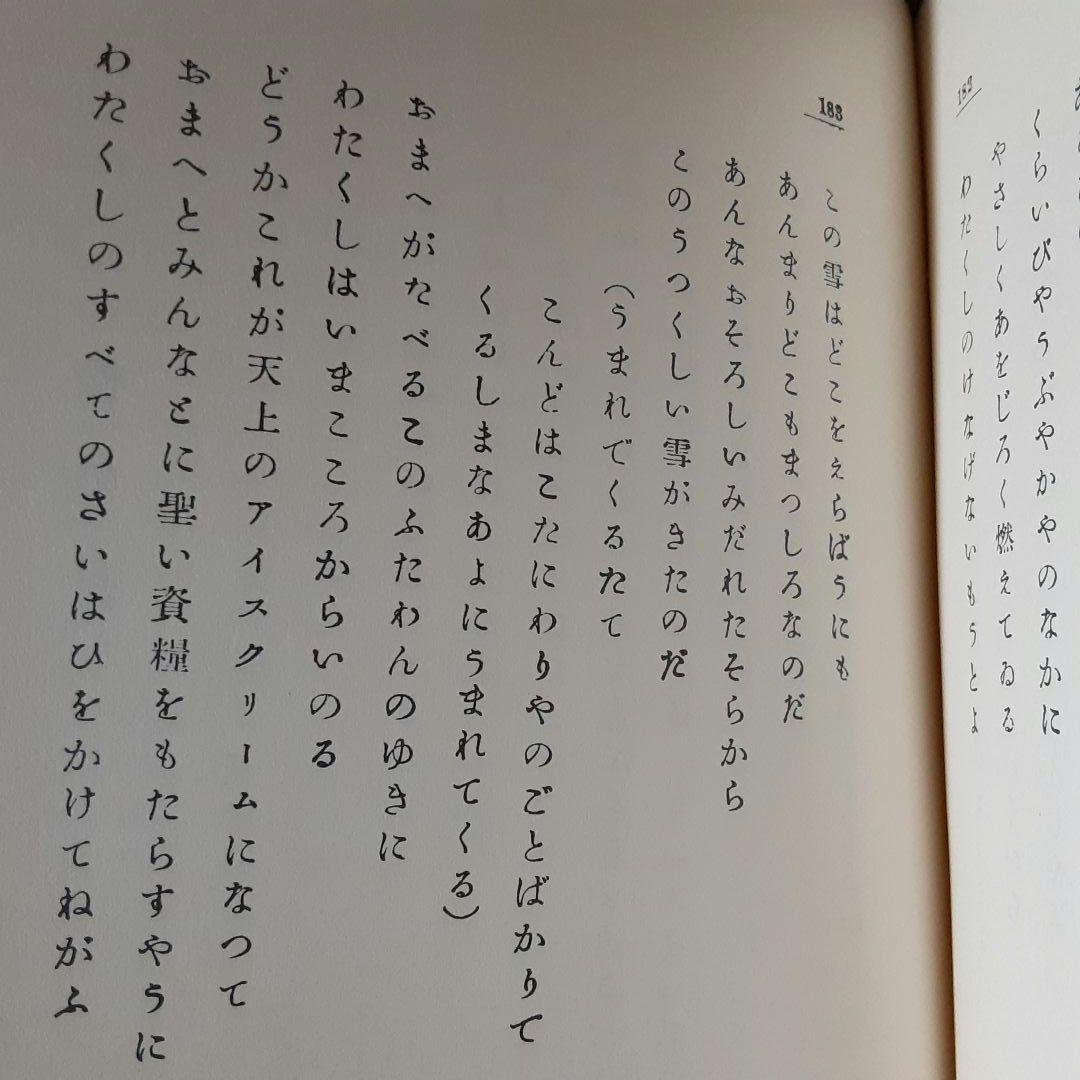 くらいびやうぶやかやのなかに
やさしくあをじろく燃えてゐる
わたくしのけなげないもうとよ
182
183
この雪はどこをえらばうにも
あんまりどこもまつしろなのだ
あんなおそろしいみだれたそらから
このうつくしい雪がきたのだ
（うまれでくるたて
こんどはこたにわりやのごとばかりて
くるしまなあよにうまれてくる）
おまへがたべるこのふたわんのゆきに
わたくしはいまこころからいのる
どうかこれが天上のアイスクリームになつて
おまへとみんなとに聖い資糧をもたらすやうに
わたくしのすべてのさいはひをかけてねがふ